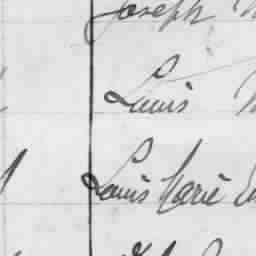 Joseph
Louis
Louis Marie